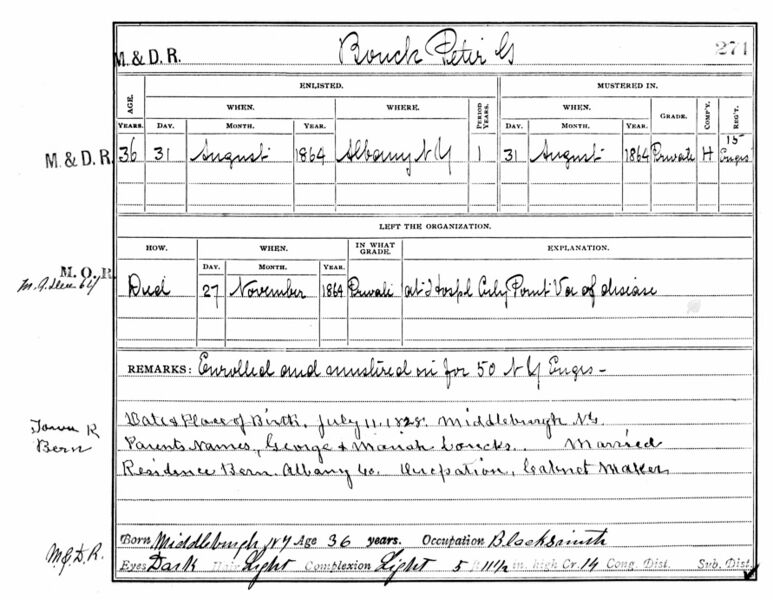 M. & D. R. Bouck Peter G 271
ENLISTED. MUSTERED IN.
AGE. WHEN. WHERE. PERIOD YEARS. WHEN. GRADE. COMP'Y. REG'T.
YEARS. DAY. MONTH. YEAR. DAY. MONTH. YEAR.
M. & D. R. 36 31 August 1864 Albany N Y 1 31 August 1864 Private H 15 Engrs
LEFT THE ORGANIZATION.
HOW. WHEN. IN WHAT GRADE. EXPLANATION.
DAY. MONTH. YEAR.
M. O. R. Died 27 November 1864 Private at Hospl City Point Va of disease
REMARKS: Enrolled and mustered in for 50 N Y Engrs -
Town R
Bern
Date & Place of Birth, July 11, 1828. Middleburgh N.Y.
Parents Names, George & Mariah Loucks. Married
Residence Bern. Albany Co. Occupation, Cabinet Maker
Born Middleburgh, NY Age 36 years. Occupation Blacksmith
M & D. R. Eyes Dark Hair Light Complexion Light 5 ft 11½ in. high Cr. 14 Cong. Dist. Sub. Dist.